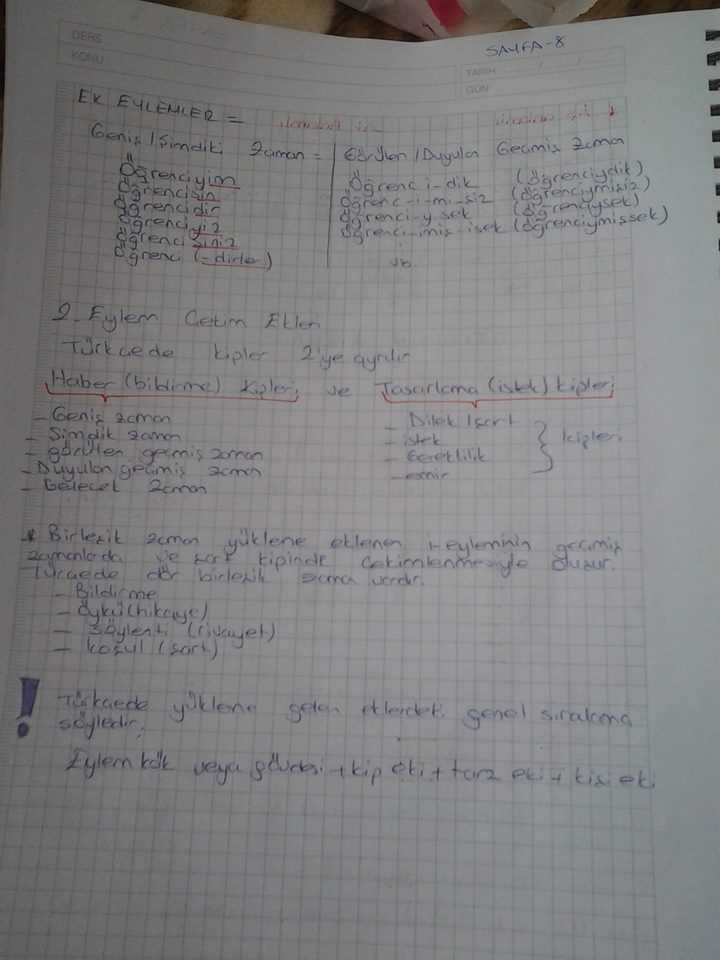 SAYFA-8
DERS
KONU
TARİH / /
GÜN
EK EYLEMLER =
Geniş / Şimdiki Zaman =
Öğrenciyim
Öğrencisin
Öğrencidir
Öğrenciyiz
Öğrencisiniz
Öğrenci (-dirler)
Görülen / Duyulan Geçmiş Zaman
Öğrenc i-dik (öğrenciydik)
Öğrenc-i-mi-siz (öğrenciymişiz)
öğrenci-y sek (öğrenciysek)
öğrenci-imiş-isek (öğrenciymişsek)
vb.
2- Eylem Çekim Ekleri
Türkçede kipler 2'ye ayrılır
Haber (bildirme) Kipleri ve Tasarlama (istek) kipleri
- Geniş zaman
- Şimdik zaman
- görülen geçmiş zaman
- Duyulan geçmiş zaman
- Gelecek zaman
- Dilek / şart
- istek
- Gereklilik
- emir
kipleri
* Birleşik zaman yüklene eklenen eyleminin geçmiş
zamanlarda ve şart kipinde çekimlenmesiyle oluşur.
Türçede dör birleşik zama vardır.
- Bildirme
- Öykü (hikaye)
- Söylenti (rivayet)
- koşul (şart)
! Türkçede yüklene gelen eklerdeki genel sıralama
şöyledir;
Eylem kök veya gövdesi + kip eki + tarz eki + kişi eki